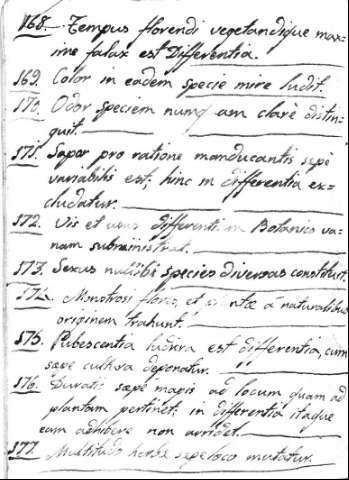 168. Tempus florendi vegetandique max=
ime falax est Differentia.
169. Color in eadem specie mire ludit.
170. Odor speciem numquam clarè distin=
guit.
171. Sapor pro ratione manducantis sepè
variabilis est; hinc in differentia ex=
cludatur.
172. Vis et usus differenti Botanico va=
nam subministrat.
173. Sexus nullibi species diversas constituit.
174. Monstrosi flores, et plantæ à naturalibus
originem trahunt.
175. Pubescentia ludicra est differentia, cum
sæpe cultura deponatur.
176. Duratio sæpe magis ad locum quam ad
plantam pertinet; in differentia itaque
eam adhibere non arridet.
177. Multitudo herbæ sepe loco mutatur.